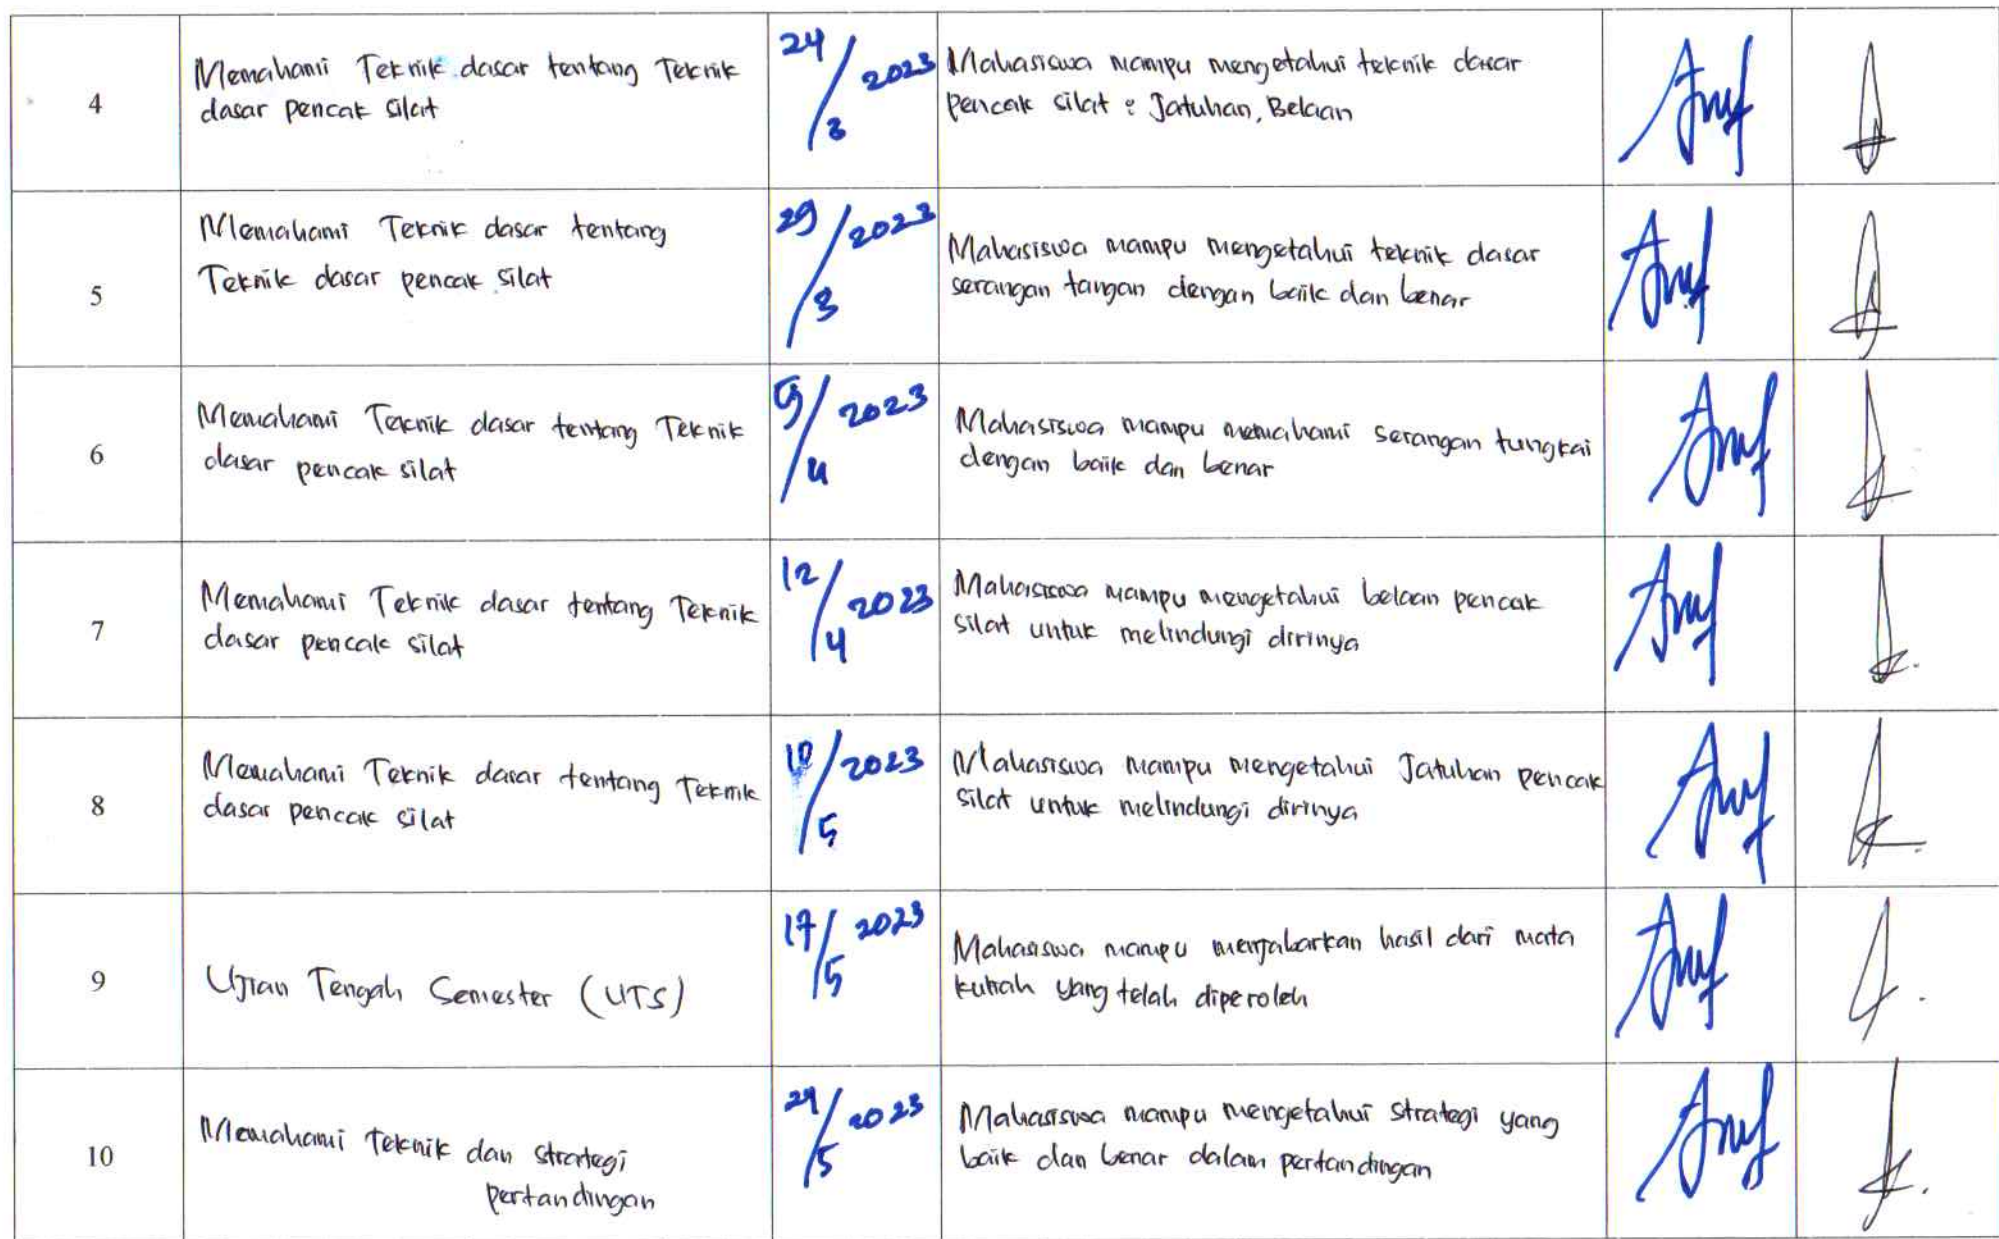 4
Memahami Teknik dasar tentang Teknik
dasar pencak silat
24/3 2023
Mahasiswa mampu mengetahui teknik dasar
pencak silat : Jatuhan, Belaan
5
Memahami Teknik dasar tentang
Teknik dasar pencak silat
29/3 2023
Mahasiswa mampu mengetahui teknik dasar
serangan tangan dengan baik dan benar
6
Memahami Teknik dasar tentang Teknik
dasar pencak silat
/4 2023
Mahasiswa mampu memahami serangan tungkai
dengan baik dan benar
7
Memahami Teknik dasar tentang Teknik
dasar pencak silat
12/4 2023
Mahasiswa mampu mengetahui belaan pencak
silat untuk melindungi dirinya
8
Memahami Teknik dasar tentang Teknik
dasar pencak silat
10/5 2023
Mahasiswa mampu mengetahui Jatuhan pencak
silat untuk melindungi dirinya
9
Ujian Tengah Semester (UTS)
17/5 2023
Mahasiswa mampu menjabarkan hasil dari mata
kuliah yang telah diperoleh
10
Memahami teknik dan strategi
pertandingan
24/5 2023
Mahasiswa mampu mengetahui strategi yang
baik dan benar dalam pertandingan